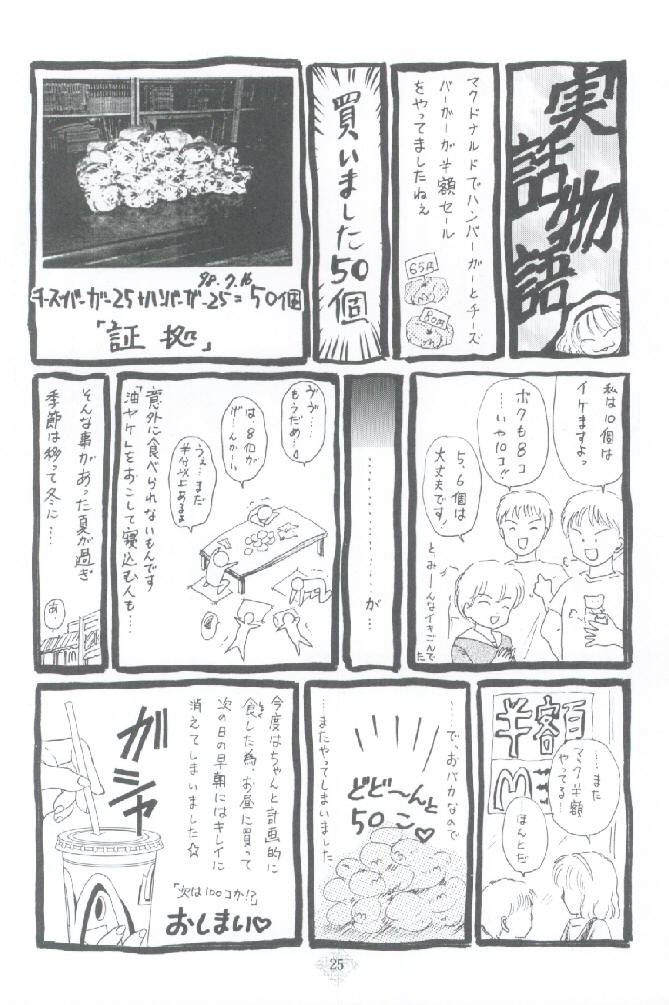 実話物語
マクドナルドでハンバーガーとチーズ
バーガーが半額セール
をやってましたねぇ
65円
80円
買いました50個
98.7.16
チーズバーガー25+ハンバーガー25=50個
「証拠」
私は10個は
イケますよっ
ボクも8コ
…いや10コ!!
5,6個は
大丈夫です!
とみーんなイキごんでた
………………が…
ヴヴ…
もうだめ…
は8個が
げ…んかい
うぇ…まだ
半分以上あるよ
意外に食べられないもんです
「油ヤケ」をおこして寝込む人も…
そんな事があった夏が過ぎ
季節は移って冬に…
あ
半額
M
……また
マック半額
やってる…
ほんとだ
……で、おバカなので
どど〜んと
50こ♡
…またやってしまいました
今度はちゃんと計画的に
食した為、お昼に買って
次の日の早朝にはキレイに
消えてしまいました☆
「次は100コか!?」
おしまい♡
ガシャ
25